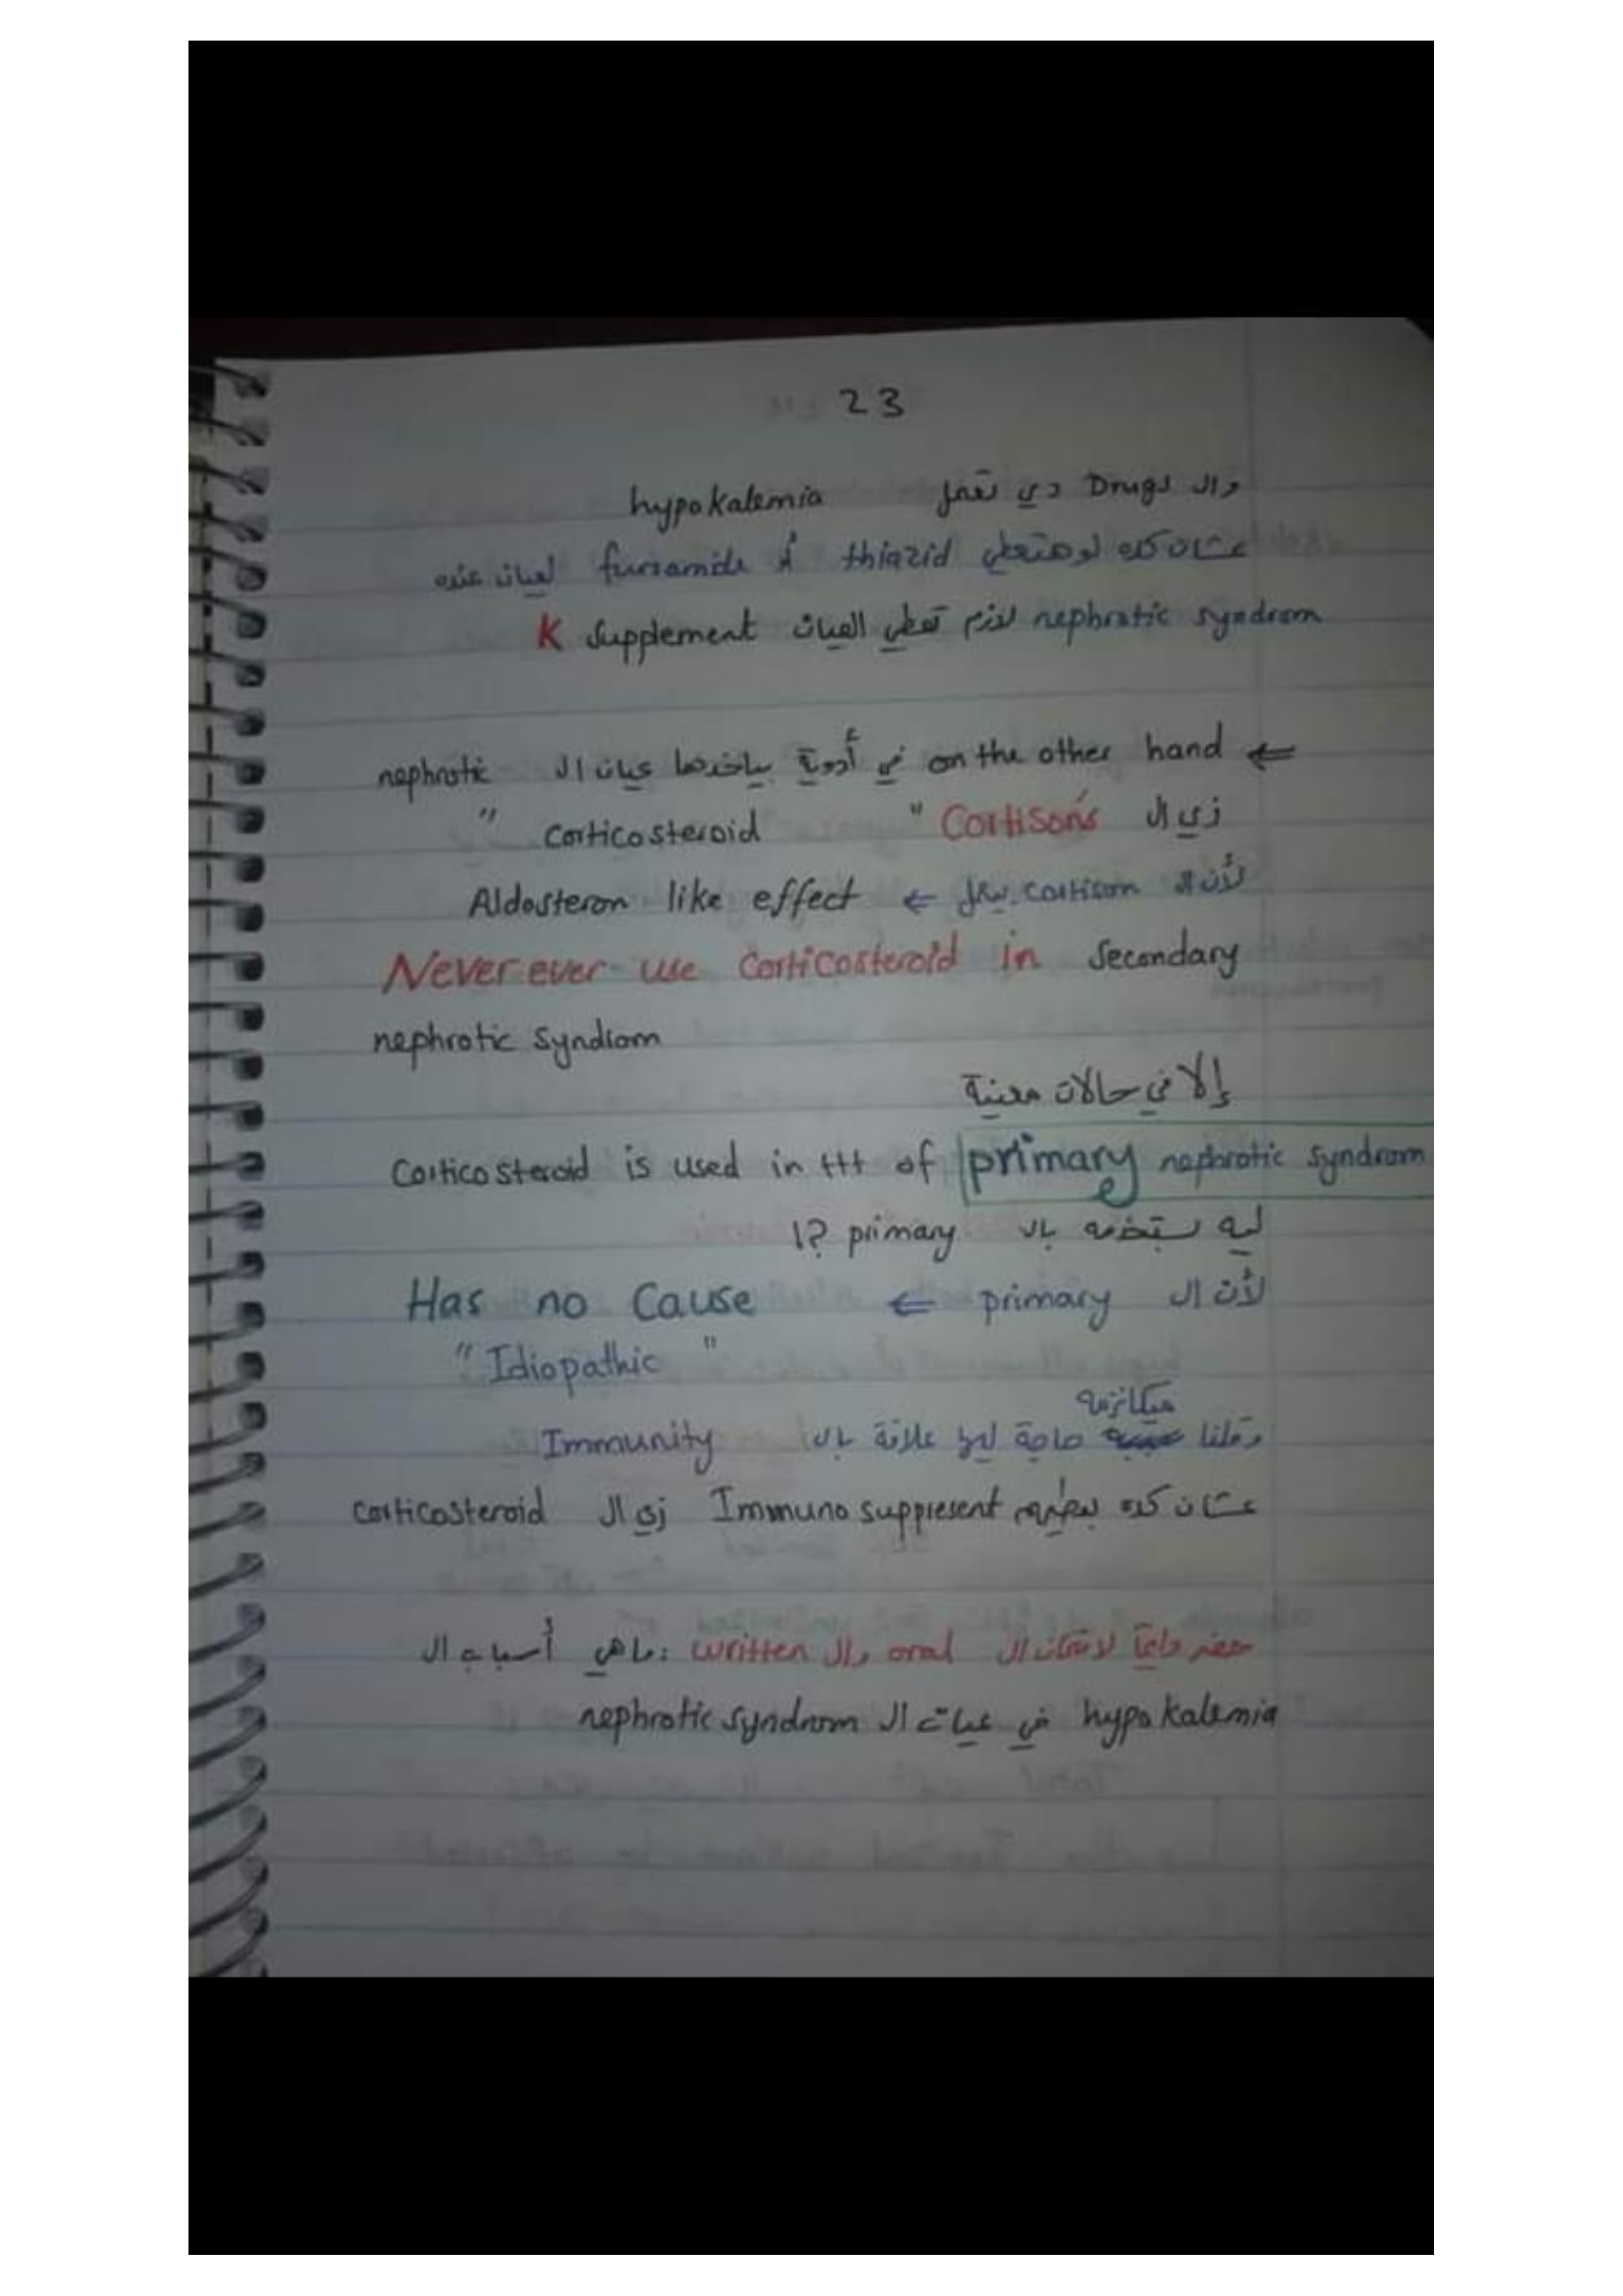 23
وال Drugs دي تعمل hypokalemia
عشان كده لو هتعطي thiazid أو fursamide لعيان عنده
nephrotic syndrom لازم تعطي العيان K supplement
← on the other hand في أدوية بياخدها عيان ال nephrotic
زي ال "Cortison's corticosteroid"
لأن ال cortison بيعمل ← Aldosteron like effect
Never ever use corticosteroid in secondary
nephrotic syndrom
إلا في حالات معينة
Corticosteroid is used in ttt of primary nephrotic syndrom
ليه بستخدمه بال primary ?!
لأن ال primary ← Has no Cause
"Idiopathic"
ميكانزمه
وقلنا حاجة لها علاقة بال Immunity
عشان كده بعطيهم Immuno suppresent زي ال corticosteroid
حضر دايماً لامتحان ال oral وال written : ما هي أسباب ال
hypokalemia في عيان ال nephrotic syndrom